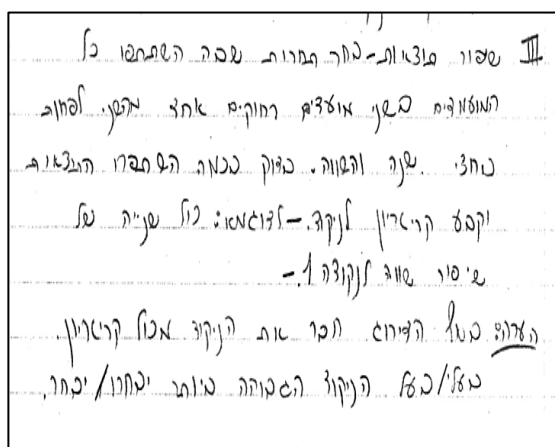 III שיפור תוצאות - בחר תחרות שבה השתתפו כל
המועמדים בשני מועדים רחוקים אחד מהשני לפחות
כחצי שנה והשווה. בדוק בכמה השתפרו התוצאות
וקבע קריטריון לניקוד. - לדוגמא: כול שנייה של
שיפור שווה לנקודה 1. -
הערה: בסוף הדירוג חבר את הניקוד מכול קריטריון
בעלי/בעל הניקוד הגבוהה ביותר יבחרו/יבחר.